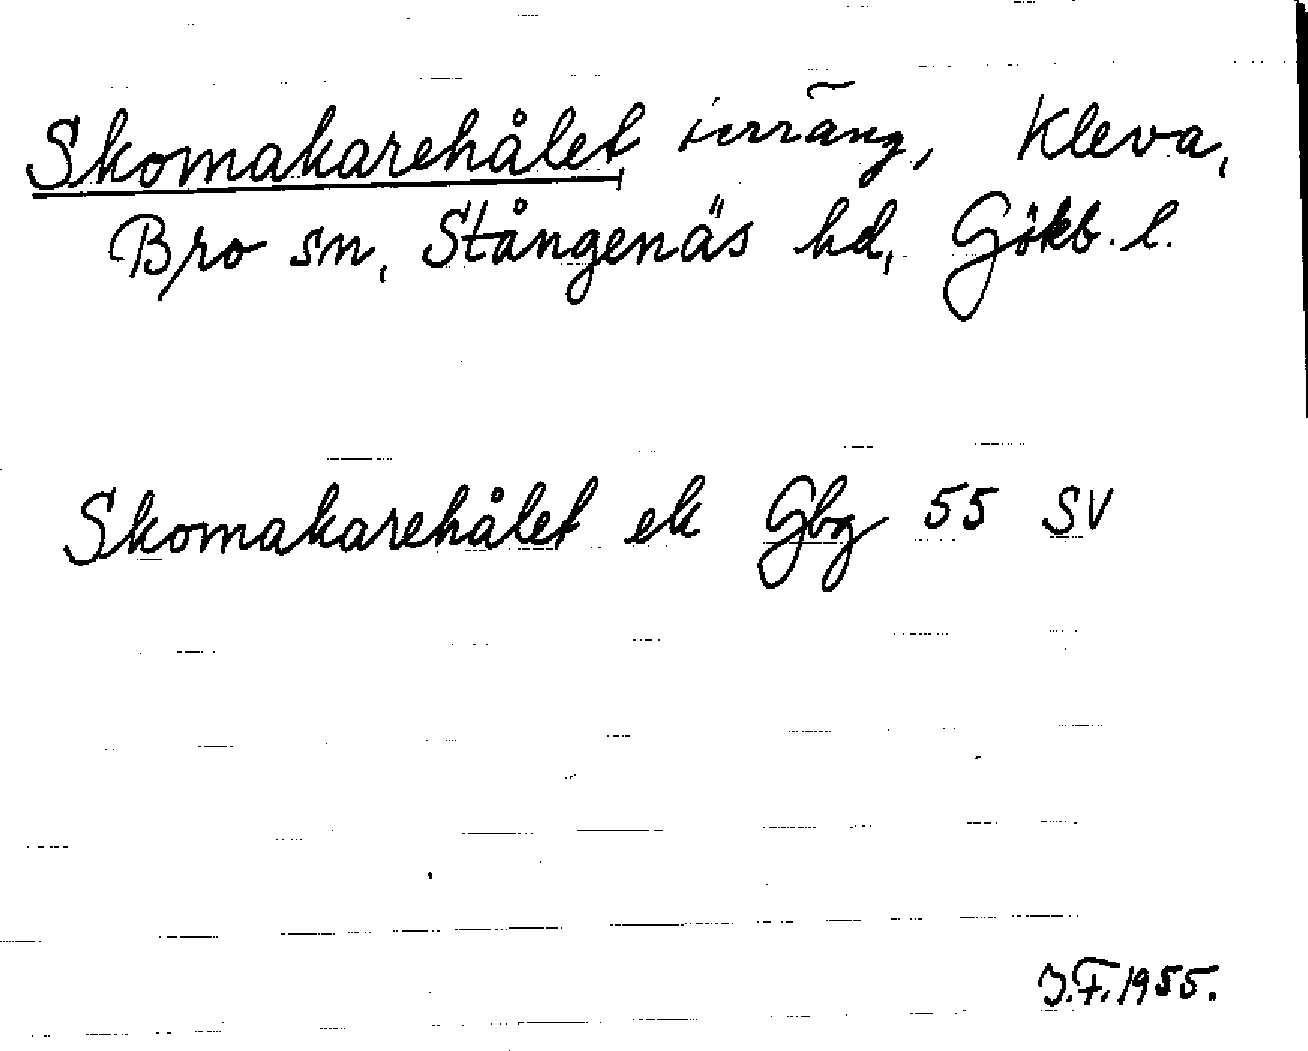 Skomakarehålet, terräng, Kleva,
Bro sn, Stångenäs hd, Gökb. l.
Skomakarehålet ek Gbg 55 SV
J.F. 1955.